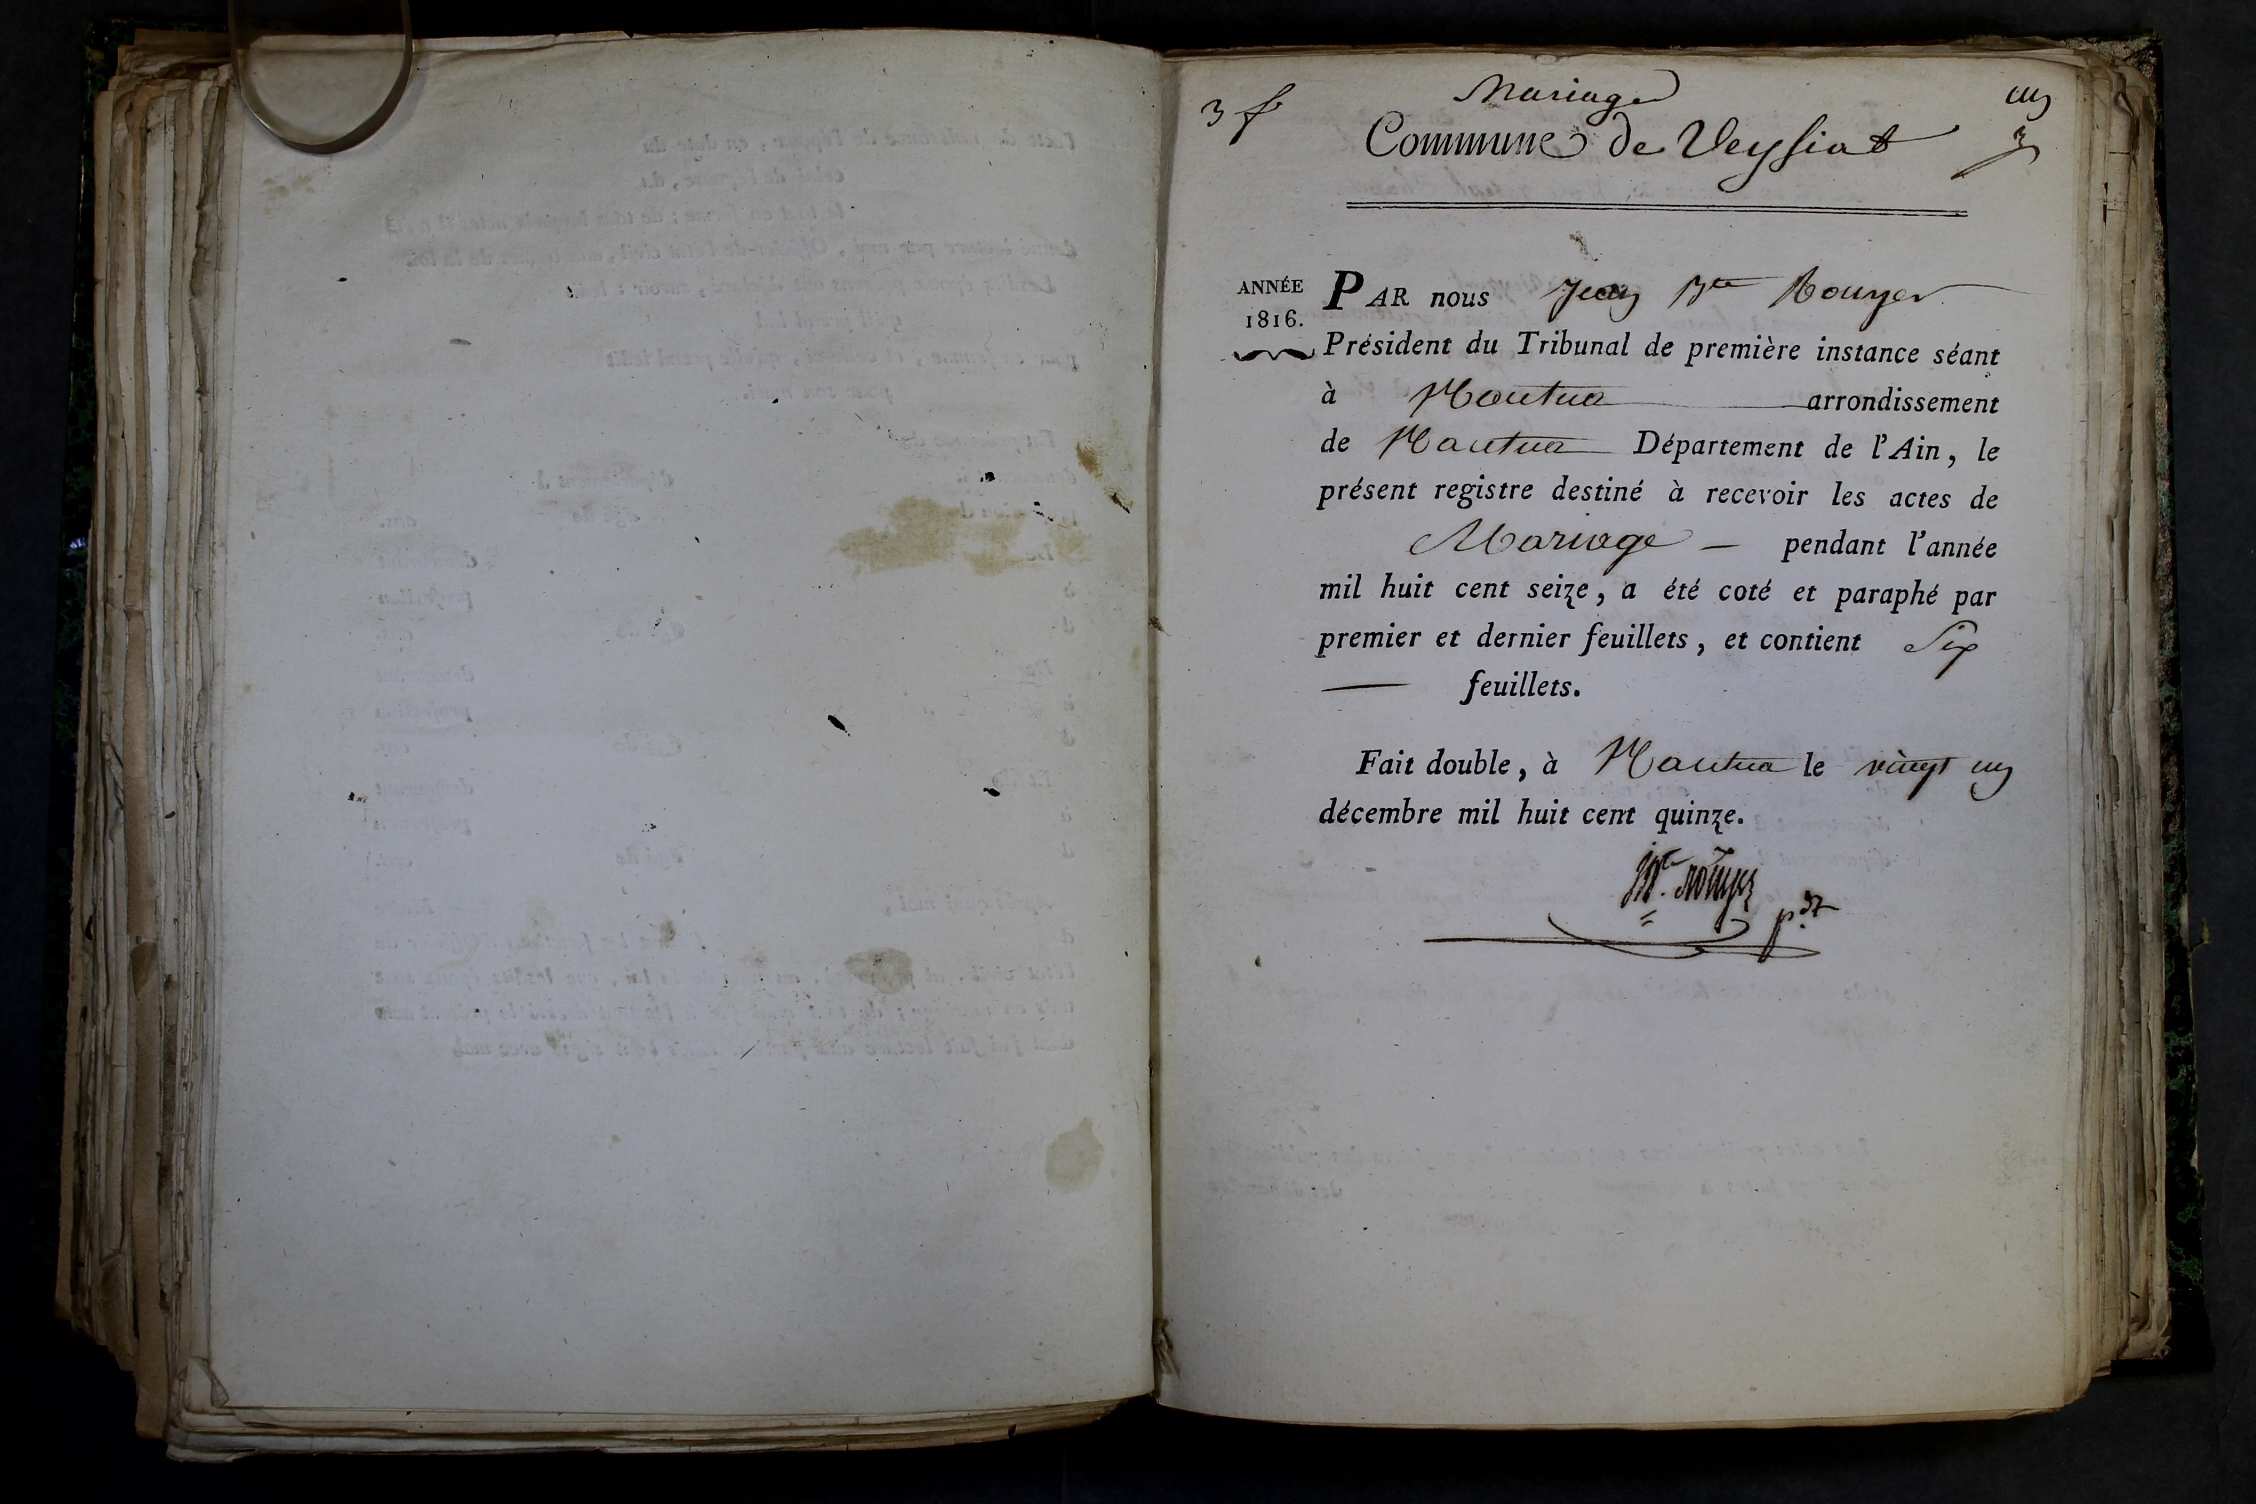 3 f
Mariage
un
Commune de Veyssiat
ANNÉE
1816.
PAR nous Jean Bte Rouyer
Président du Tribunal de première instance séant
à Nantua arrondissement
de Nantua Département de l'Ain, le
présent registre destiné à recevoir les actes de
Mariage — pendant l'année
mil huit cent seize, a été coté et paraphé par
premier et dernier feuillets, et contient Six
— feuillets.
Fait double, à Nantua le vingt un
décembre mil huit cent quinze.
JBte. Rouyer
pdt